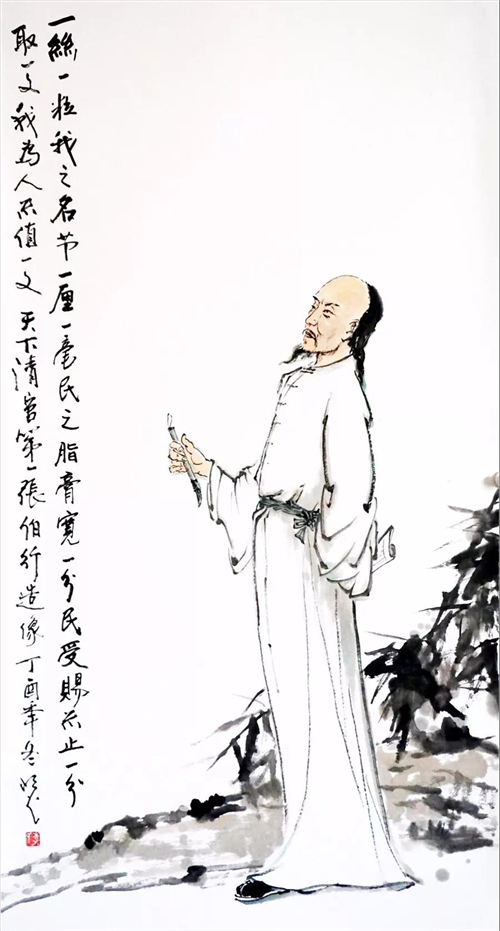 一絲一粒我之名节一厘一毫民之脂膏寬一分民受賜不止一分
取一文我為人不值一文 天下清官第一張伯行造像丁酉年冬